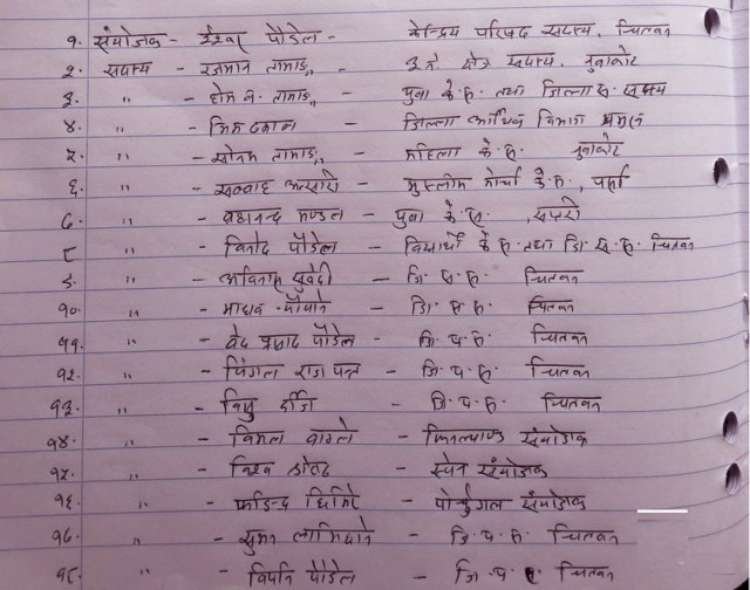 १. संयोजक - ईश्वर पौडेल - केन्द्रिय परिषद सदस्य, चितवन
२. सदस्य - रजमान तामाङ - ३ नं. क्षेत्र सदस्य, नुवाकोट
३. " - होम ब. तामाङ - युवा के.स. तथा जिल्ला स. सदस्य
४. " - भिम ढकाल - जिल्ला आर्थिक विभाग
५. " - सोनम तामाङ - महिला के.स. नुवाकोट
६. " - अन्सारी - मुस्लीम मोर्चा के.स., पर्सा
७. " - ब्रह्मानन्द मण्डल - युवा के.स. , सप्तरी
८ " - विनोद पौडेल - विद्यार्थी के.स. तथा जि.स.स. चितवन
९. " - अविनाश सुवेदी - जि.स.स. चितवन
१०. " - माधव - जि.स.स. चितवन
११. " - वेद प्रसाद पौडेल - जि.प.स. चितवन
१२. " - पिंगल राज पन्त - जि.प.स. चितवन
१३. " - विष्णु - जि.प.स. चितवन
१४. " - विमल वाग्ले - फिनल्याण्ड संयोजक
१५. " - विश्व - स्पेन संयोजक
१६. " - फडिन्द्र घिमिरे - पोर्चुगल संयोजक
१७. " - सुमन लामिछाने - जि.प.स. चितवन
१८. " - पौडेल - जि.प.स. चितवन